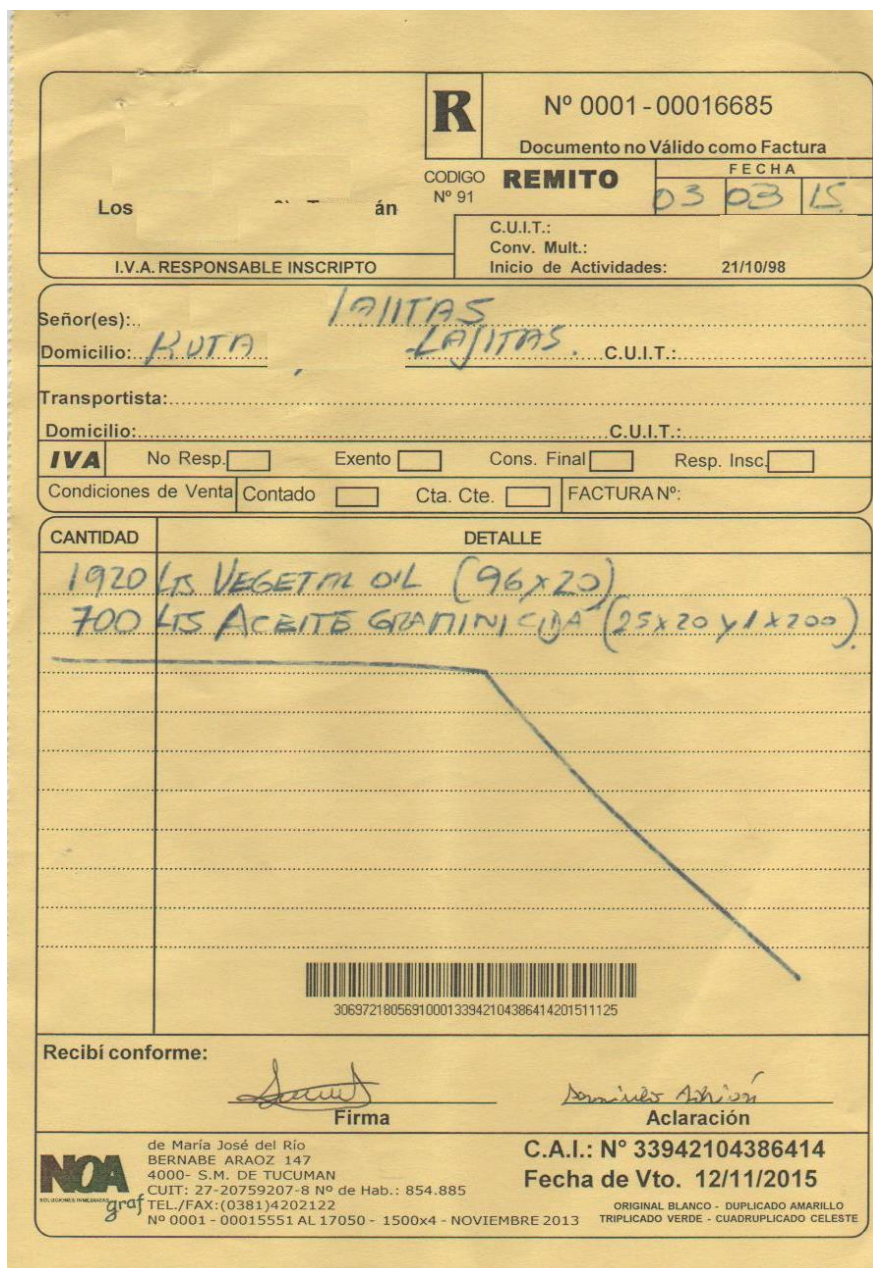 R
Nº 0001-00016685
Documento no Válido como Factura
CODIGO Nº 91
REMITO
FECHA
03 03 15
Los án
C.U.I.T.:
Conv. Mult.:
I.V.A. RESPONSABLE INSCRIPTO
Inicio de Actividades: 21/10/98
Señor(es):.. LAJITAS
Domicilio: RUTA LAJITAS. C.U.I.T.:
Transportista:
Domicilio: C.U.I.T.:
IVA No Resp. Exento Cons. Final Resp. Insc.
Condiciones de Venta Contado Cta. Cte. FACTURA Nº:
CANTIDAD DETALLE
1920 LTS VEGETAL OIL (96x20)
700 LTS ACEITE GRAMINICIDA (25x20 y 1x200).
306972180569100013394210438641420151125
Recibí conforme:
Firma Aclaración
NOA graf
SOLUCIONES INMEDIATAS
de María José del Río
BERNABE ARAOZ 147
4000- S.M. DE TUCUMAN
CUIT: 27-20759207-8 Nº de Hab.: 854.885
TEL./FAX:(0381)4202122
Nº 0001 - 00015551 AL 17050 - 1500x4 - NOVIEMBRE 2013
C.A.I.: Nº 33942104386414
Fecha de Vto. 12/11/2015
ORIGINAL BLANCO - DUPLICADO AMARILLO
TRIPLICADO VERDE - CUADRUPLICADO CELESTE